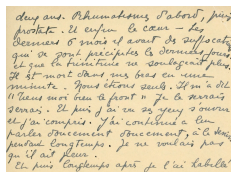 deux ans. Rhumatismes d'abord, puis
prostate. Et enfin le cœur – les
derniers 6 mois il avait des suffocations
qui se sont précipitées les derniers jours.
et que la trinitrine ne soulageait plus.
Il est mort dans mes bras en une
minute. Nous étions seuls. Il m'a dit
"Tiens moi bien le front" Je le serrais
serrais. Et puis j'ai vu ses yeux s'ouvrir
et j'ai compris. J'ai continué à lui
parler doucement doucement, à le serrer
pendant longtemps. Je ne voulais pas
qu'il ait peur.
Et puis longtemps après je l'ai habillé